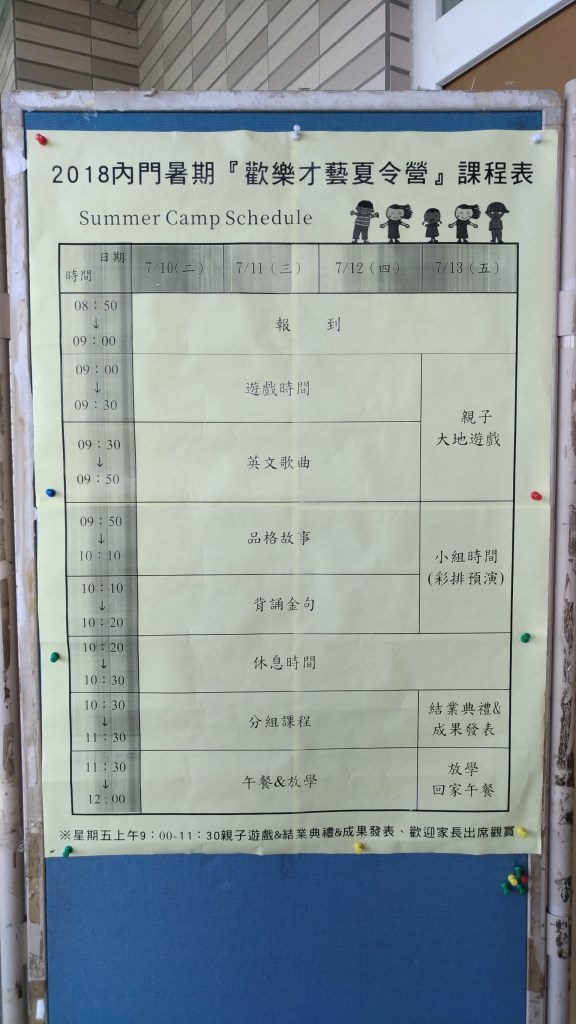 2018內門暑期『歡樂才藝夏令營』課程表
Summer Camp Schedule
日期
時間
7/10(二)
7/11(三)
7/12(四)
7/13(五)
08：50
↓
09：00
報 到
09：00
↓
09：30
遊戲時間
親子
大地遊戲
09：30
↓
09：50
英文歌曲
09：50
↓
10：10
品格故事
小組時間
(彩排預演)
10：10
↓
10：20
背誦金句
10：20
↓
10：30
休息時間
10：30
↓
11：30
分組課程
結業典禮&
成果發表
11：30
↓
12：00
午餐&放學
放學
回家午餐
※星期五上午9：00-11：30親子遊戲&結業典禮&成果發表、歡迎家長出席觀賞